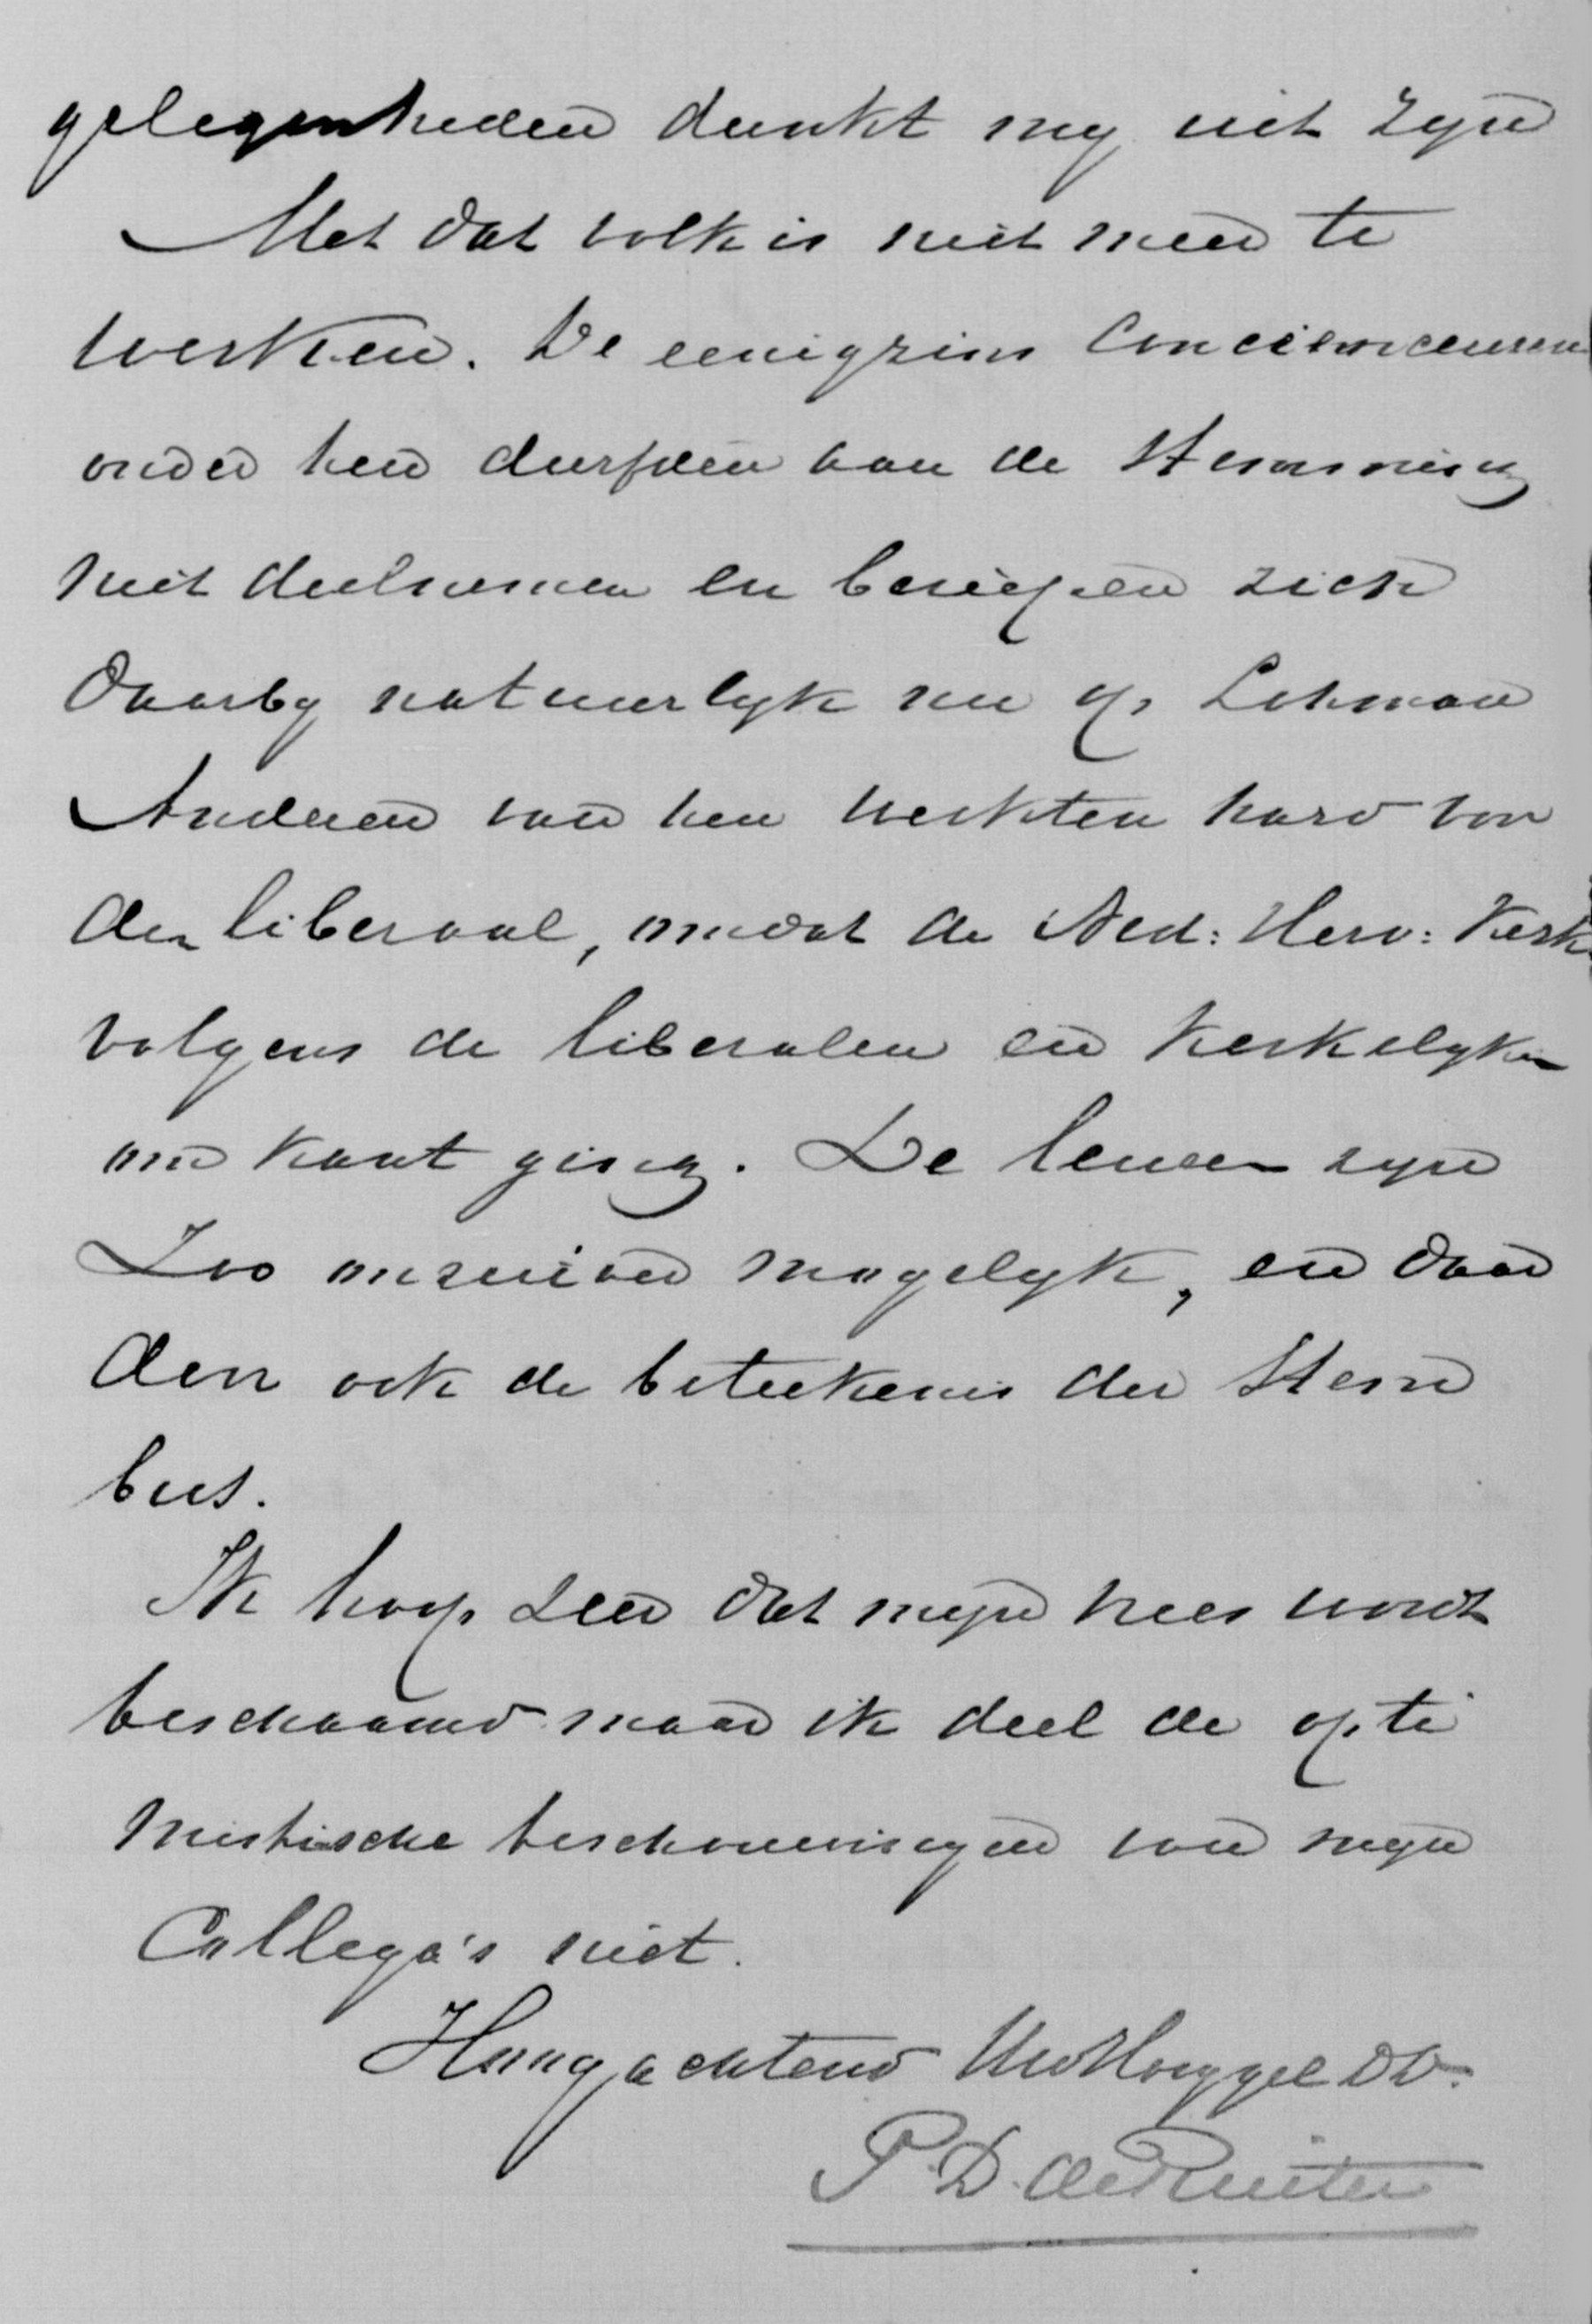 gelegenheden dunkt my uit zyn
Met dat volk is niet meer te
werken. De eenigzins
onder hen durfden aan de stemming
niet deelnemen en beriepen zich
daarby natuurlyk nu op Lohman
Anderen van hen werkten hard voor
den liberaal, omdat de Ned: Herv: Kerk
volgens de liberalen en kerkelyken
om kant ging. De leuzen zyn
Zoo onzuiver mogelyk, en daar
door ook de beteekenis der Stem
bus.
Ik hoop zeer dat myn vrees wordt
beschaamd maar ik deel de opti
mistische beschouwingen van myn
Collega's niet.
Hoogachtend UwHoogGel DV.
P. D. de Ruiter